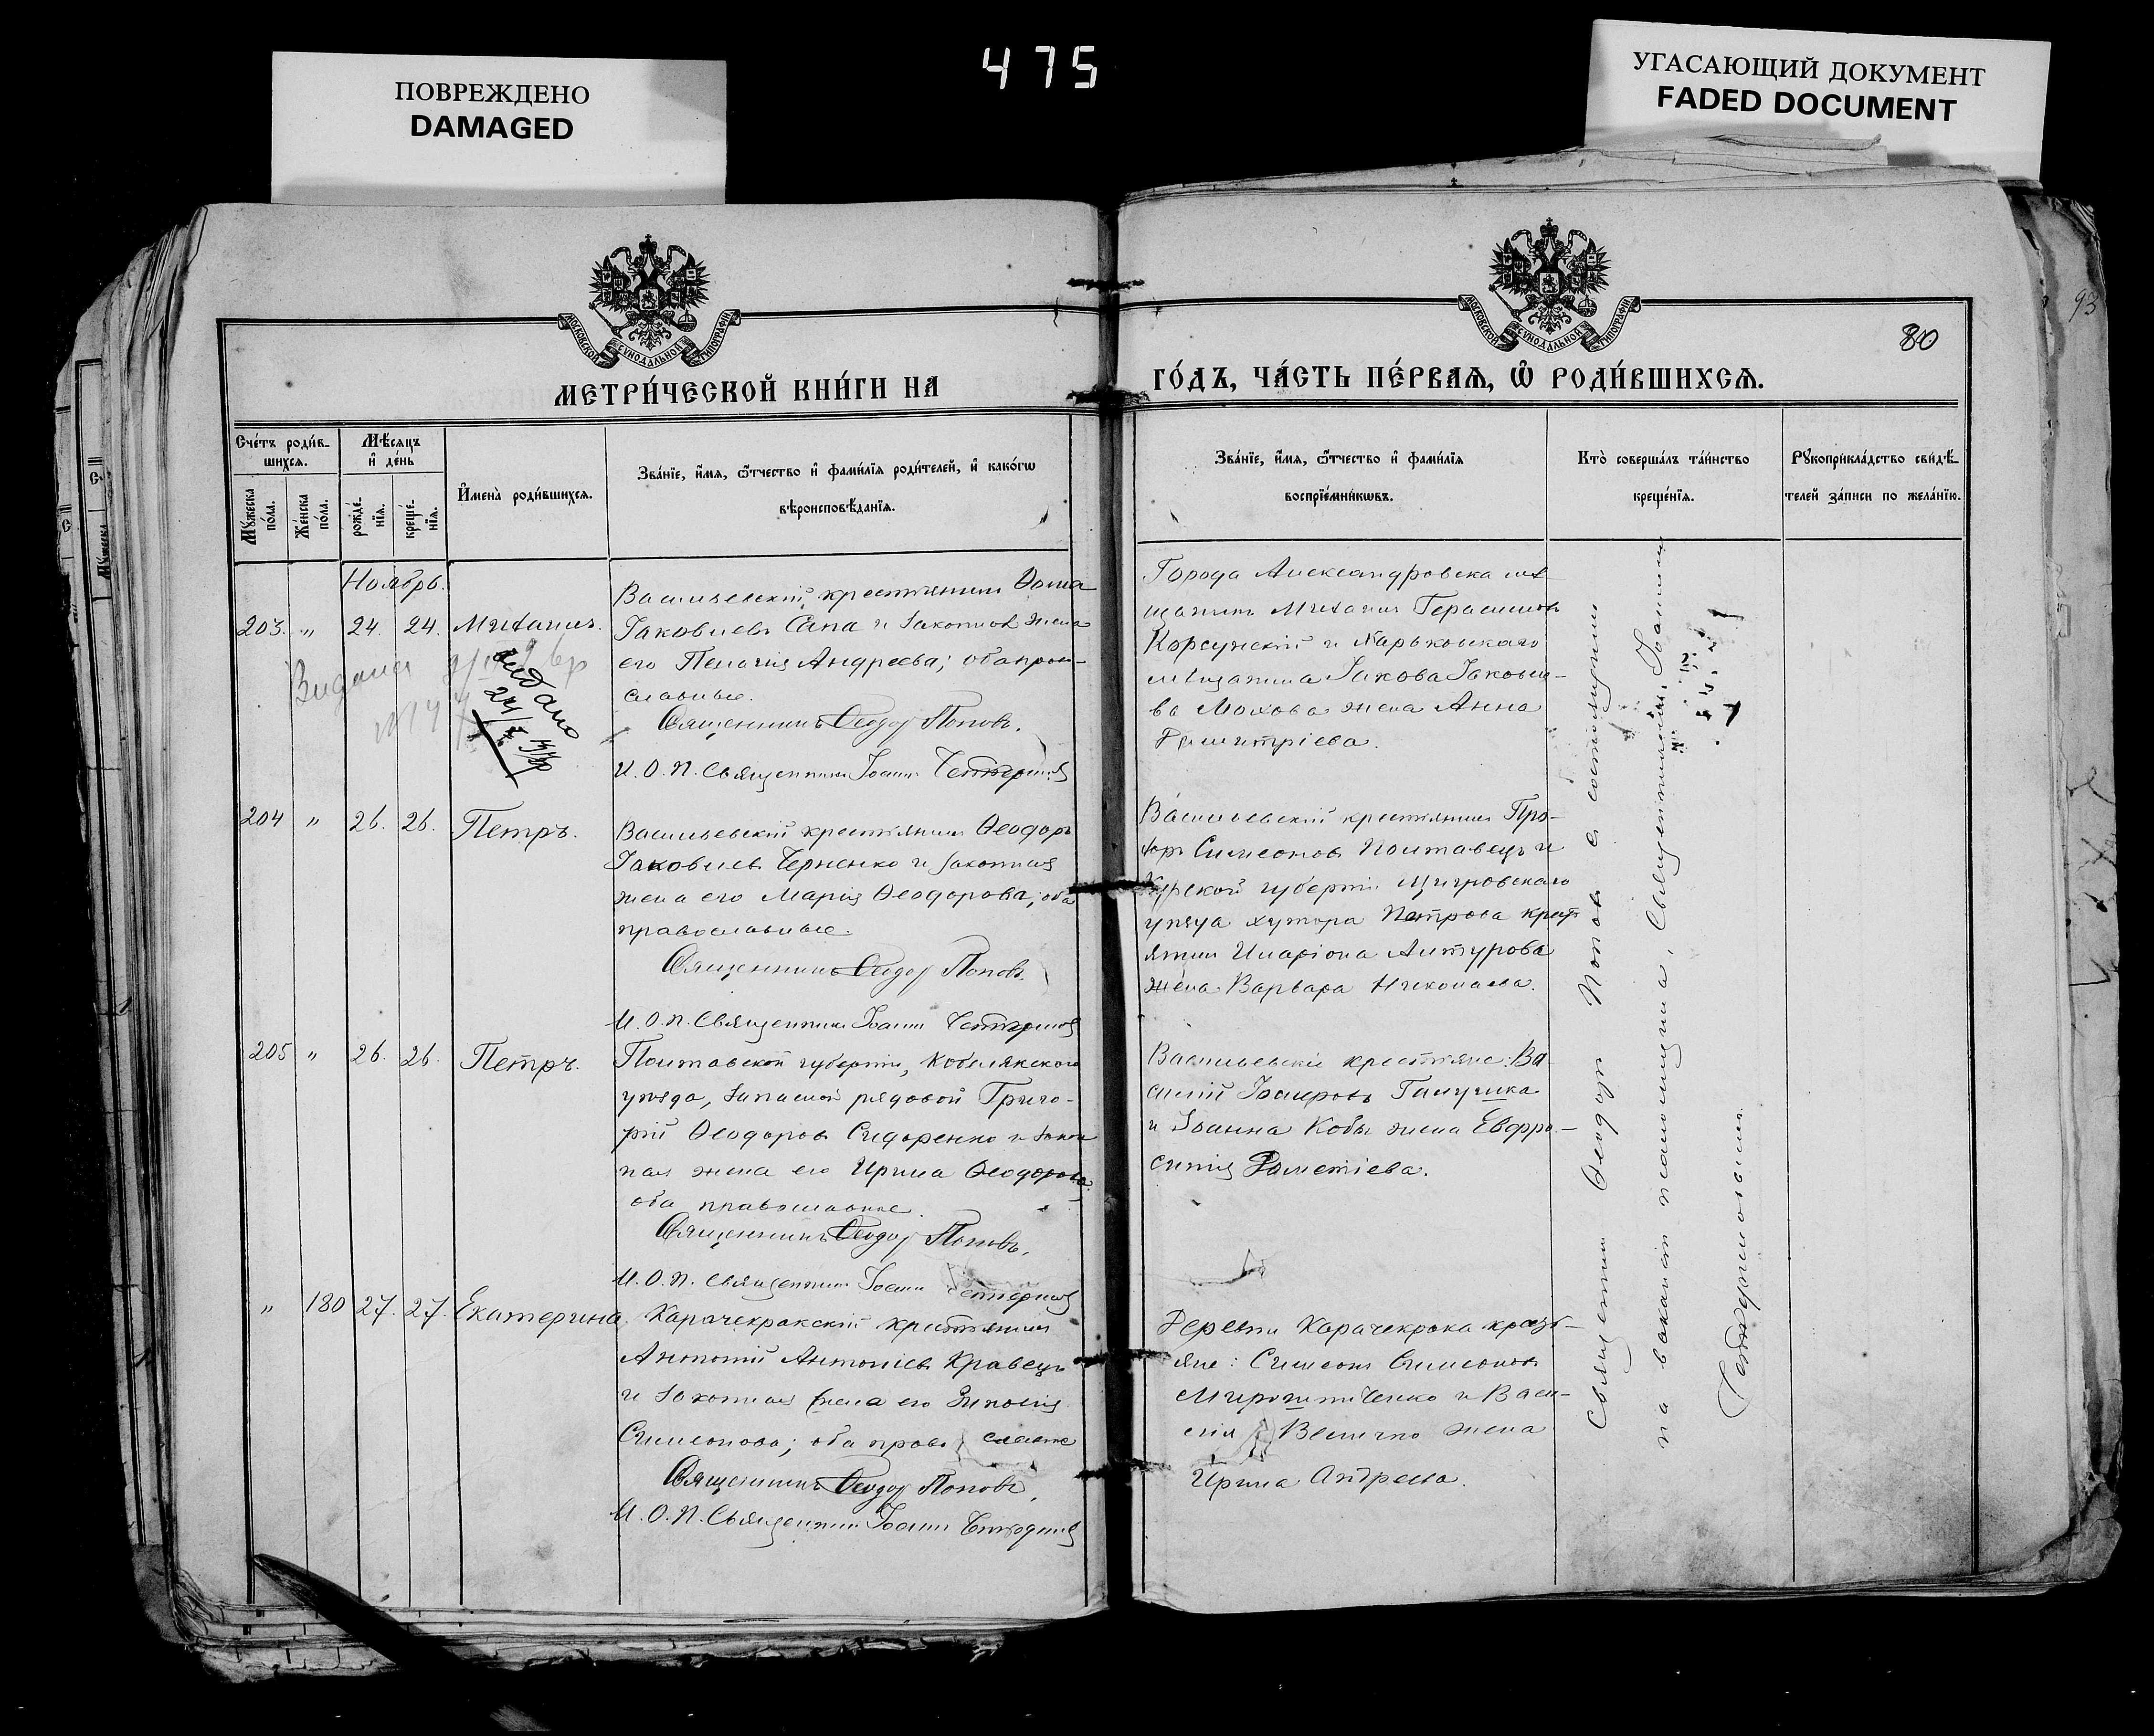 ПОВРЕЖДЕНО
DAMAGED
475
УГАСАЮЩИЙ ДОКУМЕНТ
FADED DOCUMENT
93
МОСКОВСКОЙ СѴНОДАЛЬНОЙ ТИПОГРАФІИ
МОСКОВСКОЙ СѴНОДАЛЬНОЙ ТИПОГРАФІИ
80
МЕТРИ́ЧЕСКОЙ КНИ́ГИ НА
ГО́ДЪ, ЧА́СТЬ ПЕ́РВАѦ, Ѽ РОДИ́ВШИХСѦ.
Сче́тъ роди́в-
шихсѧ.
Мꙋ́жеска по́ла.
Же́нска по́ла.
Мѣ́сѧцъ
и҆ де́нь
рожде́-нїѧ.
креще́-нїѧ.
И҆мена̀ роди́вшихсѧ.
Зва́нїе, и҆́мѧ, ѻ҆́тчество и҆ фами́лїѧ роди́телей, и҆ како́гѡ
вѣроисповѣ́данїѧ.
Зва́нїе, и҆́мѧ, ѻ҆́тчество и҆ фами́лїѧ
воспрїе́мникѡвъ.
Кто̀ соверша́лъ та́инство
креще́нїѧ.
Рꙋкоприкла́дство свидѣ́-
телей за́писи по жела́нїю.
Ноябрь.
203. " 24. 24. Михаилъ.
Васильевскій крестьянинъ Ѳома
Іаковлевъ Сапа и законная жена
его Пелагія Андреева; оба право-
славные.
Священникъ Ѳеодоръ Поповъ.
И. О. П. Священникъ Іоаннъ
Города Александровска мѣ-
щанинъ Михаилъ Герасимовъ
Корсунскій и Харьковскаго
мѣщанина Іакова Іаковле-
ва Мохова жена Анна
Димитріева.
Видана
видано
204 " 26. 26. Петръ.
Васильевскій крестьянинъ Ѳеодоръ
Іаковлевъ Черненко и законная
жена его Марія Ѳеодорова; оба
православные.
Священникъ Ѳеодоръ Поповъ.
И. О. П. Священникъ Іоаннъ
Васильевскій крестьянинъ Про-
хоръ Симеоновъ Полтавецъ и
Курской губерніи Щигровскаго
уѣзда хутора Петрова крест-
янина Иларіона
жена Варвара Николаева.
205 " 26. 26. Петръ.
Полтавской губерніи, Кобелякскаго
уѣзда, запасной рядовой Григо-
рій Ѳеодоровъ Сидоренко и закон
ная жена его Ирина Ѳеодорова
оба православные.
Священникъ Ѳеодоръ Поповъ.
И. О. П. Священникъ Іоаннъ
Васильевскіе крестьяне: Ва-
силій Галушка
и Іоанна Кобы жена Евфро-
синія
" 180 27. 27. Екатерина.
Карачекракскій крестьянинъ
Антоній Антоніевъ Кравецъ
и законная жена его Зиновія
Симеонова; оба православные
Священникъ Ѳеодоръ Поповъ.
И. О. П. Священникъ Іоаннъ
Деревни Карачекрака кресть-
яне: Симеонъ Симеоновъ
Мирошниченко и Васи-
лія Величко жена
Ирина Андреева.
Священникъ Ѳеодоръ Поповъ съ состоящимъ
на вакансіи псаломщика, Священникомъ Іоанномъ